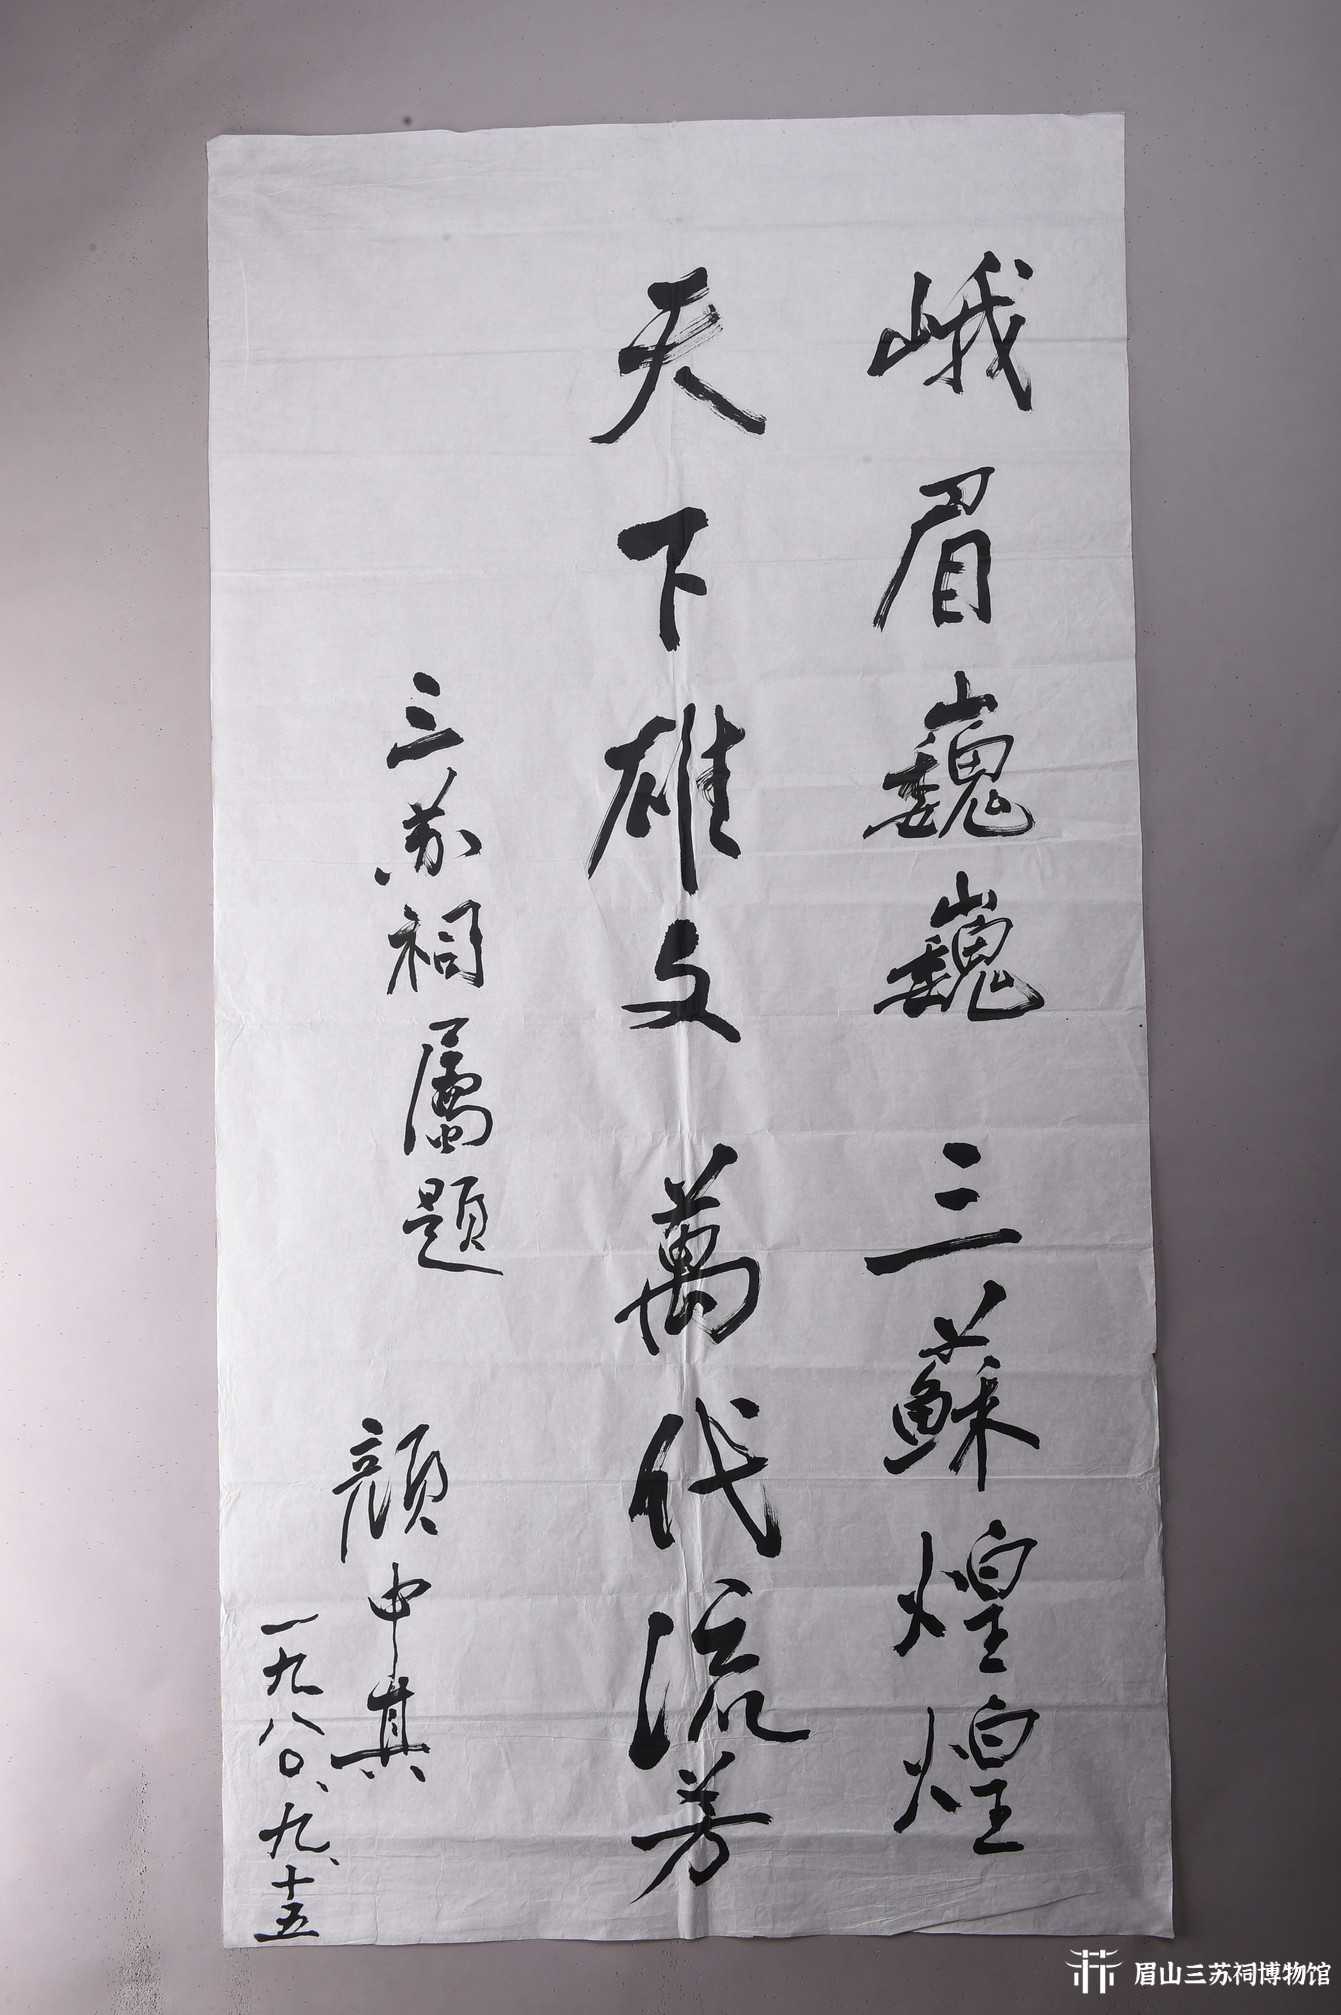 峨眉巍巍 三蘇煌煌
天下雄文 萬代流芳
三苏祠属題
顔中其
一九八〇、九、十五
眉山三苏祠博物馆